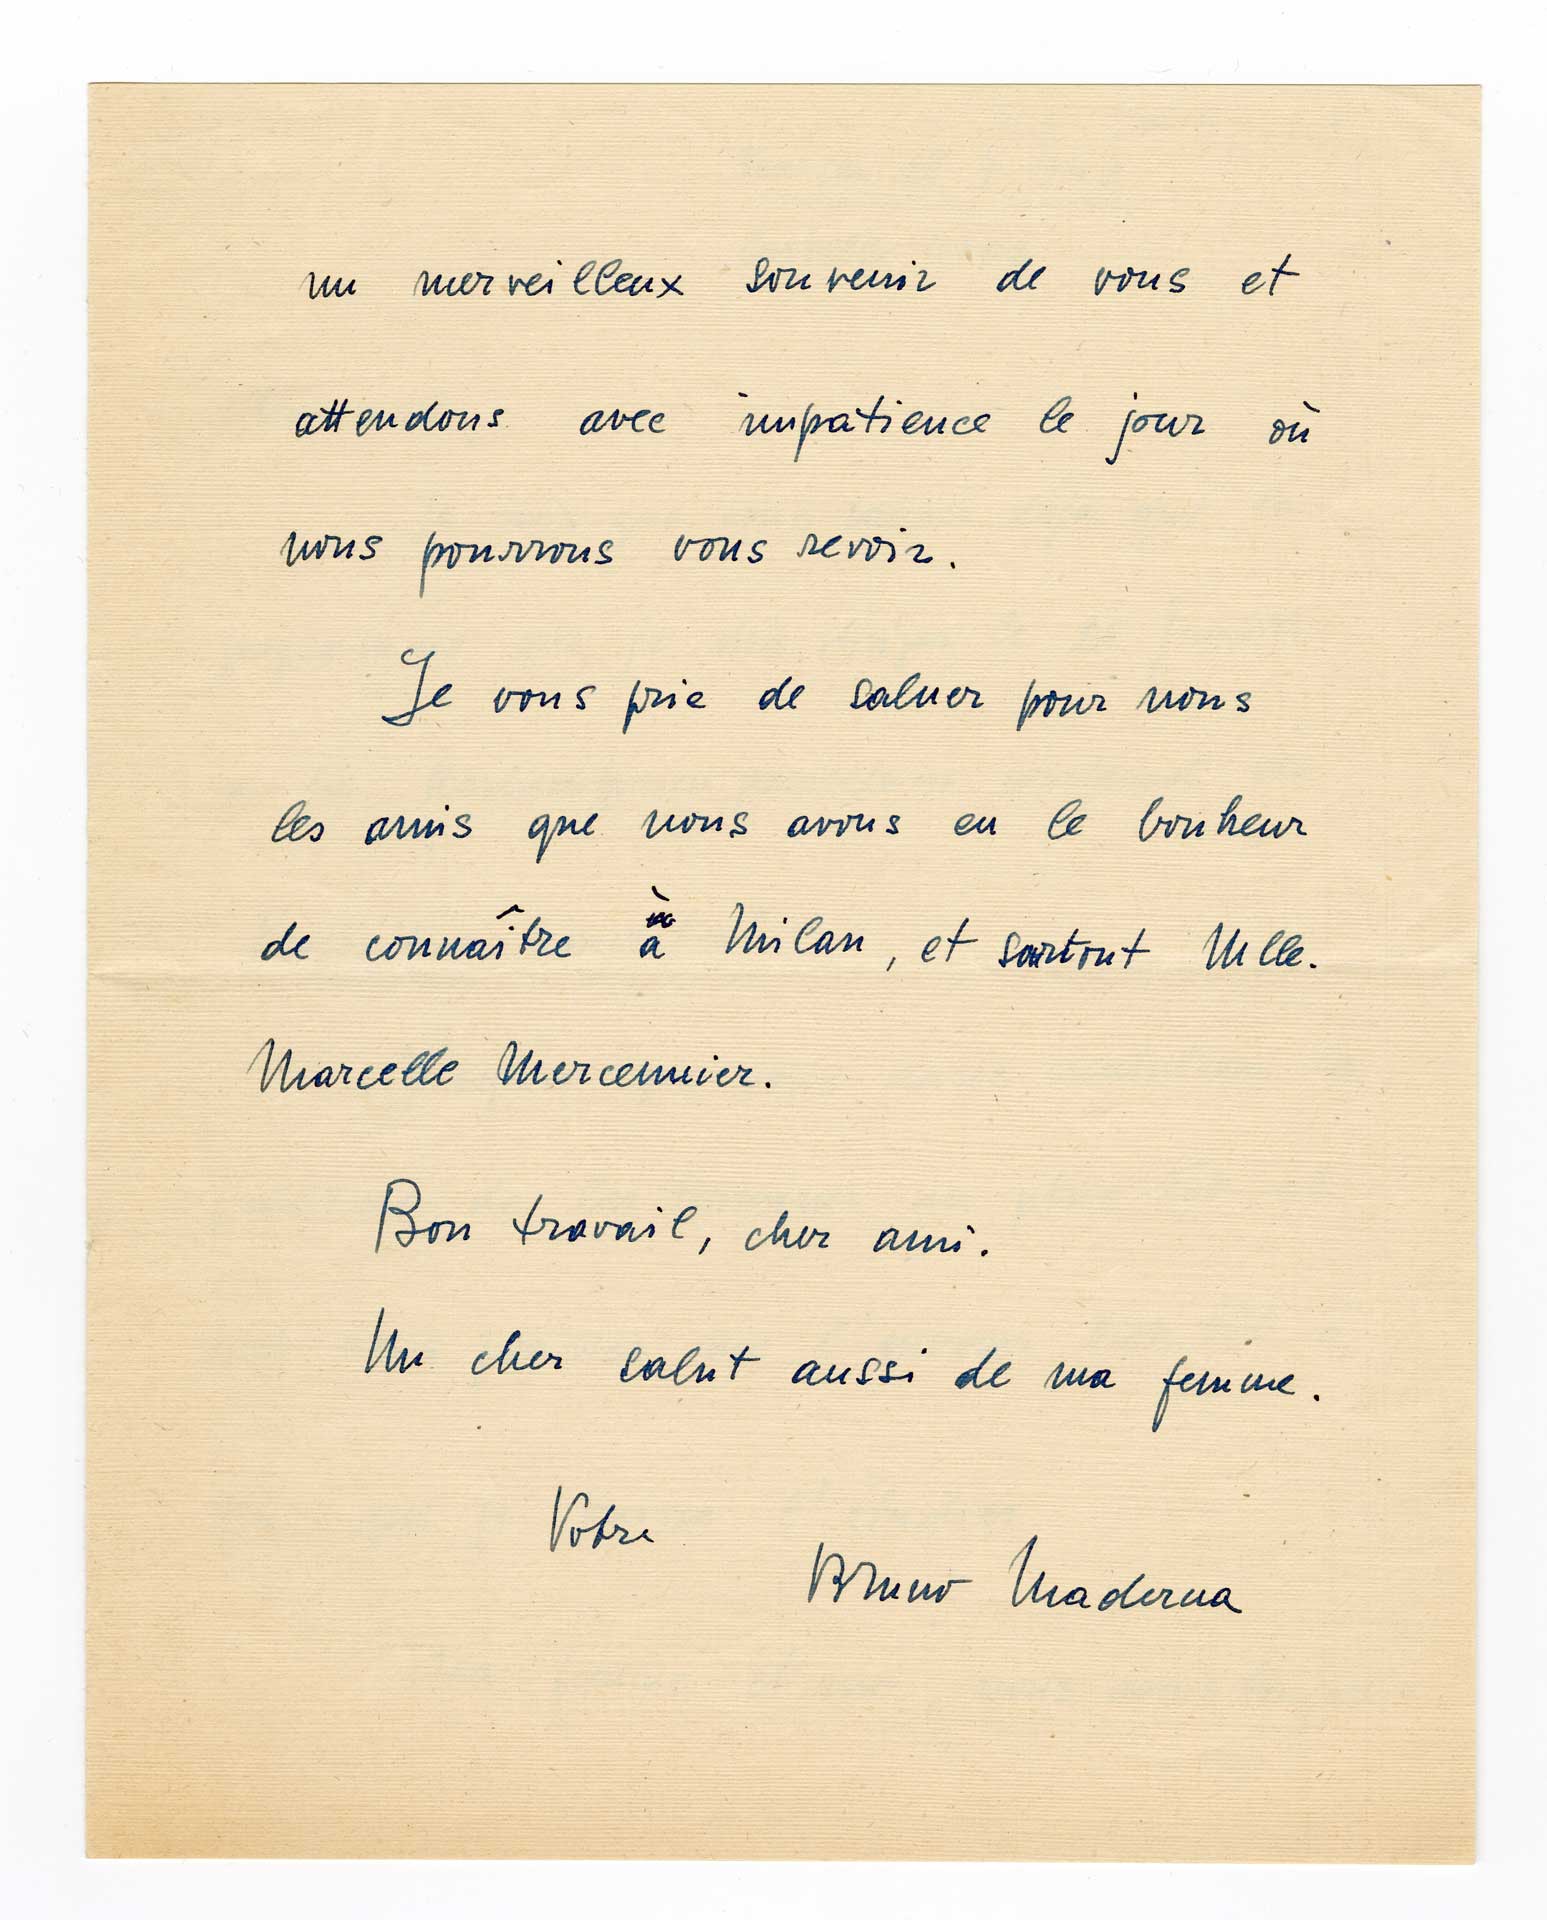 un merveilleux souvenir de vous et
attendons avec impatience le jour où
nous pourrons vous revoir.
Je vous prie de saluer pour nous
les amis que nous avons eu le bonheur
de connaître à Milan, et surtout Mlle.
Marcelle Mercennier.
Bon travail, cher ami.
Un cher salut aussi de ma femme.
Votre
Bruno Maderna